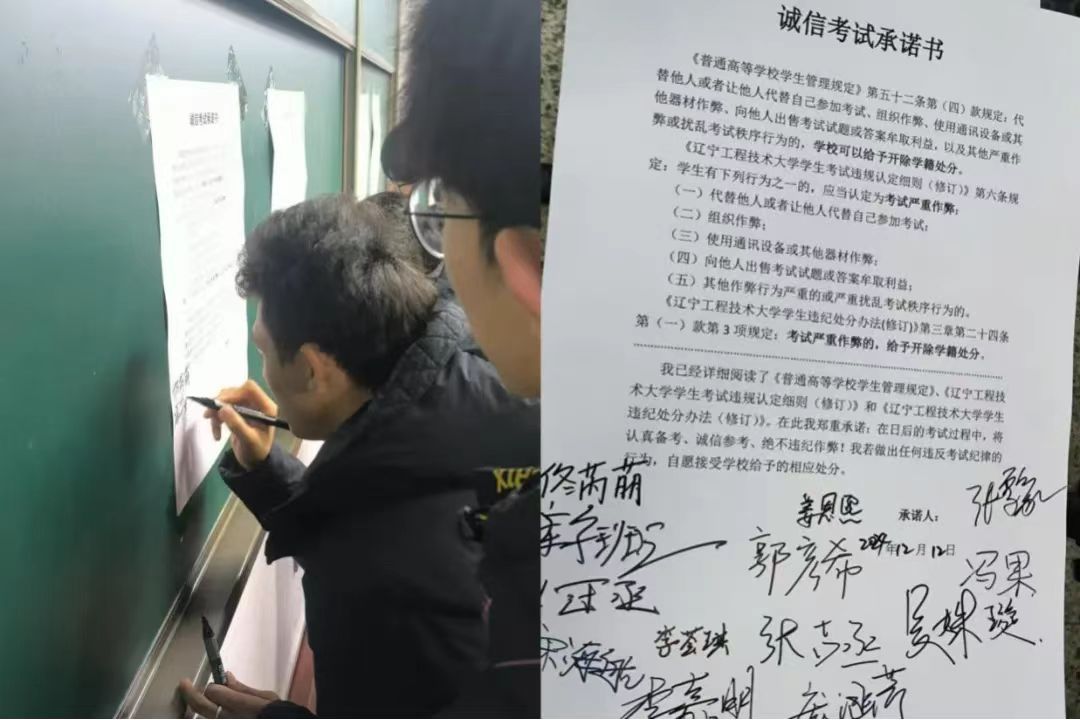 诚信考试承诺书
诚信考试承诺书
《普通高等学校学生管理规定》第五十二条第（四）款规定：代
替他人或者让他人代替自己参加考试、组织作弊、使用通讯设备或其
他器材作弊、向他人出售考试试题或答案牟取利益，以及其他严重作
弊或扰乱考试秩序行为的，学校可以给予开除学籍处分。
《辽宁工程技术大学学生考试违规认定细则（修订）》第六条规
定：学生有下列行为之一的，应当认定为考试严重作弊：
（一）代替他人或者让他人代替自己参加考试；
（二）组织作弊；
（三）使用通讯设备或其他器材作弊；
（四）向他人出售考试试题或答案牟取利益；
（五）其他作弊行为严重的或严重扰乱考试秩序行为的。
《辽宁工程技术大学学生违纪处分办法(修订)》第三章第二十四条
第（一）款第 3 项规定：考试严重作弊的，给予开除学籍处分。
我已经详细阅读了《普通高等学校学生管理规定》、《辽宁工程技
术大学学生考试违规认定细则（修订）》和《辽宁工程技术大学学生
违纪处分办法（修订）》。在此我郑重承诺：在日后的考试过程中，将
认真备考、诚信参考、绝不违纪作弊！我若做出任何违反考试纪律的
行为，自愿接受学校给予的相应处分。
佟芮萌
姜恩熙
承诺人：
郭彦希
2024年12月12日
冯果
李莹琪
张志丞